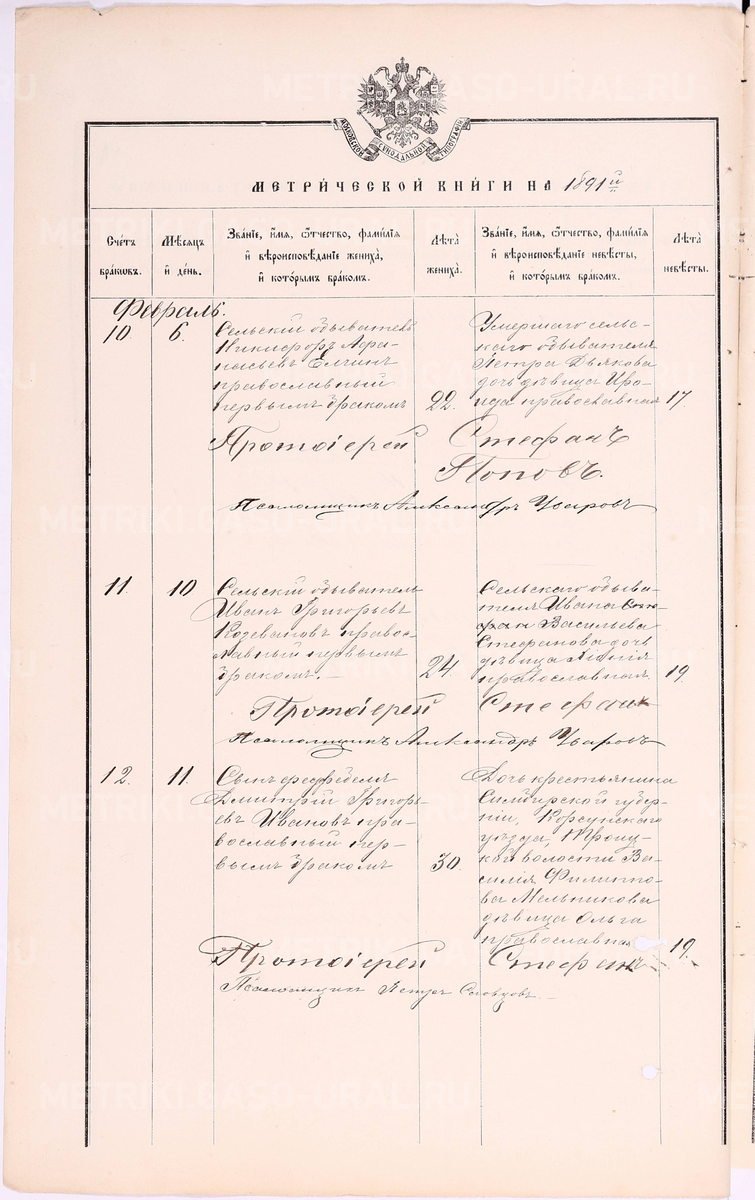 МОСКОВСКОЙ СѴНОДАЛЬНОЙ ТИПОГРАФІИ
МЕТРИ́ЧЕСКОЙ КНИ́ГИ НА 1891й
Сче́тъ бра́кѡвъ.
Мѣ́сѧцъ и҆ де́нь.
Зва́нїе, и҆́мѧ, ѻ҆́тчество, фами́лїѧ
и҆ вѣроисповѣ́данїе жениха̀,
и҆ кото́рымъ бра́комъ.
Лѣ́та жениха̀.
Зва́нїе, и҆́мѧ, ѻ҆́тчество, фами́лїѧ
и҆ вѣроисповѣ́данїе невѣ́сты,
и҆ кото́рымъ бра́комъ.
Лѣ́та невѣ́сты.
Февраль.
10. 6.
Сельскій обыватель
Никифоръ Афа-
насьевъ Елчинъ
православный
первымъ бракомъ
22.
Умершаго сель-
скаго обывателя
Петра Дьякова
дочь дѣвица Иро-
ида православная
17
Протоіерей Стефанъ
Поповъ.
Псаломщикъ Александръ Уваровъ
11. 10
Сельскій обыватель
Иванъ Григорьевъ
Козевановъ правос-
лавный первымъ
бракомъ. —
24.
Сельскаго обыва-
теля Ивана
Васильева
Стефанова дочь
дѣвица
православная.
19.
Протоіерей Стефанъ
Псаломщикъ Александръ Уваровъ
12. 11.
Сынъ фельдфебеля
Дмитрій Григорь-
евъ Ивановъ пра-
вославный пер-
вымъ бракомъ
30.
Дочь крестьянина
Симбирской губер-
ніи, Корсунскаго
уѣзда, Троиц-
кой волости Ва-
силія Филиппо-
ва Мельникова
дѣвица Ольга
православная
19.
Протоіерей Стефанъ
Псаломщикъ Петръ Словцовъ.
METRIKI.GASO-URAL.RU